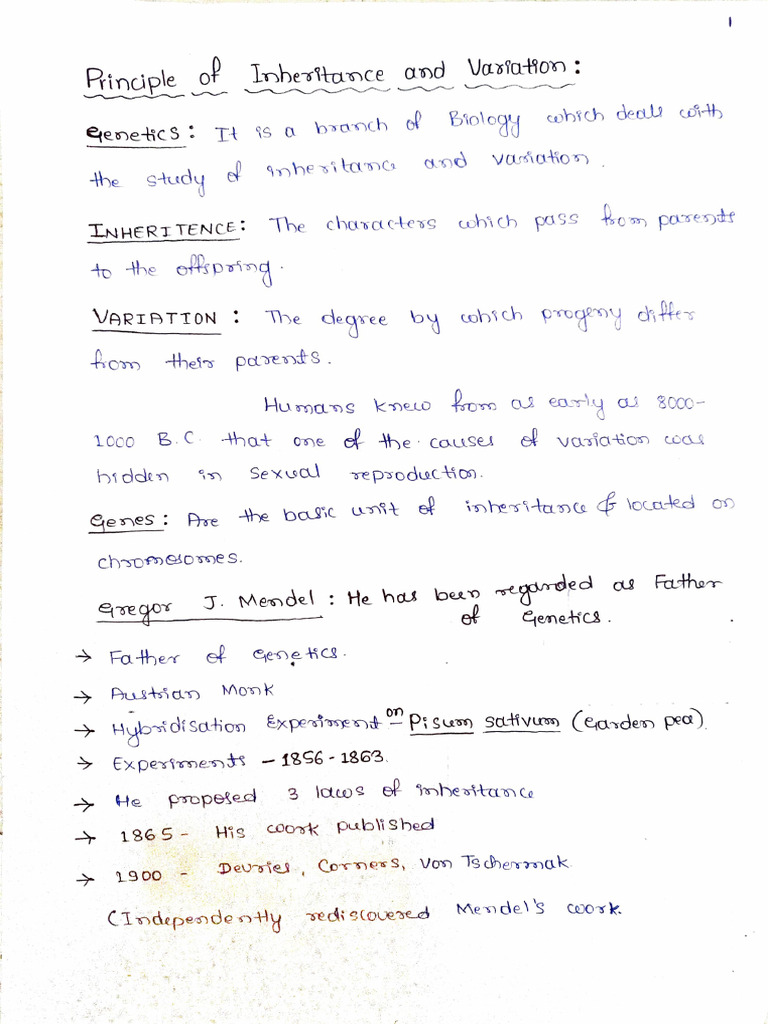 1
Principle of Inheritance and Variation:
Genetics: It is a branch of Biology which deals with
the study of inheritance and variation.
INHERITENCE: The characters which pass from parents
to the offspring.
VARIATION: The degree by which progeny differ
from their parents.
Humans knew from as early as 8000-
1000 B.C. that one of the causes of variation was
hidden in sexual reproduction.
Genes: Are the basic unit of inheritance & located on
chromosomes.
Gregor J. Mendel: He has been regarded as Father
of Genetics.
→ Father of Genetics.
→ Austrian Monk
→ Hybridisation Experiment on – Pisum sativum (Garden pea).
→ Experiments – 1856-1863.
→ He proposed 3 laws of inheritance
→ 1865- His work published
→ 1900 - Devries, Corners, von Tschermak
(Independently rediscovered Mendel's work.